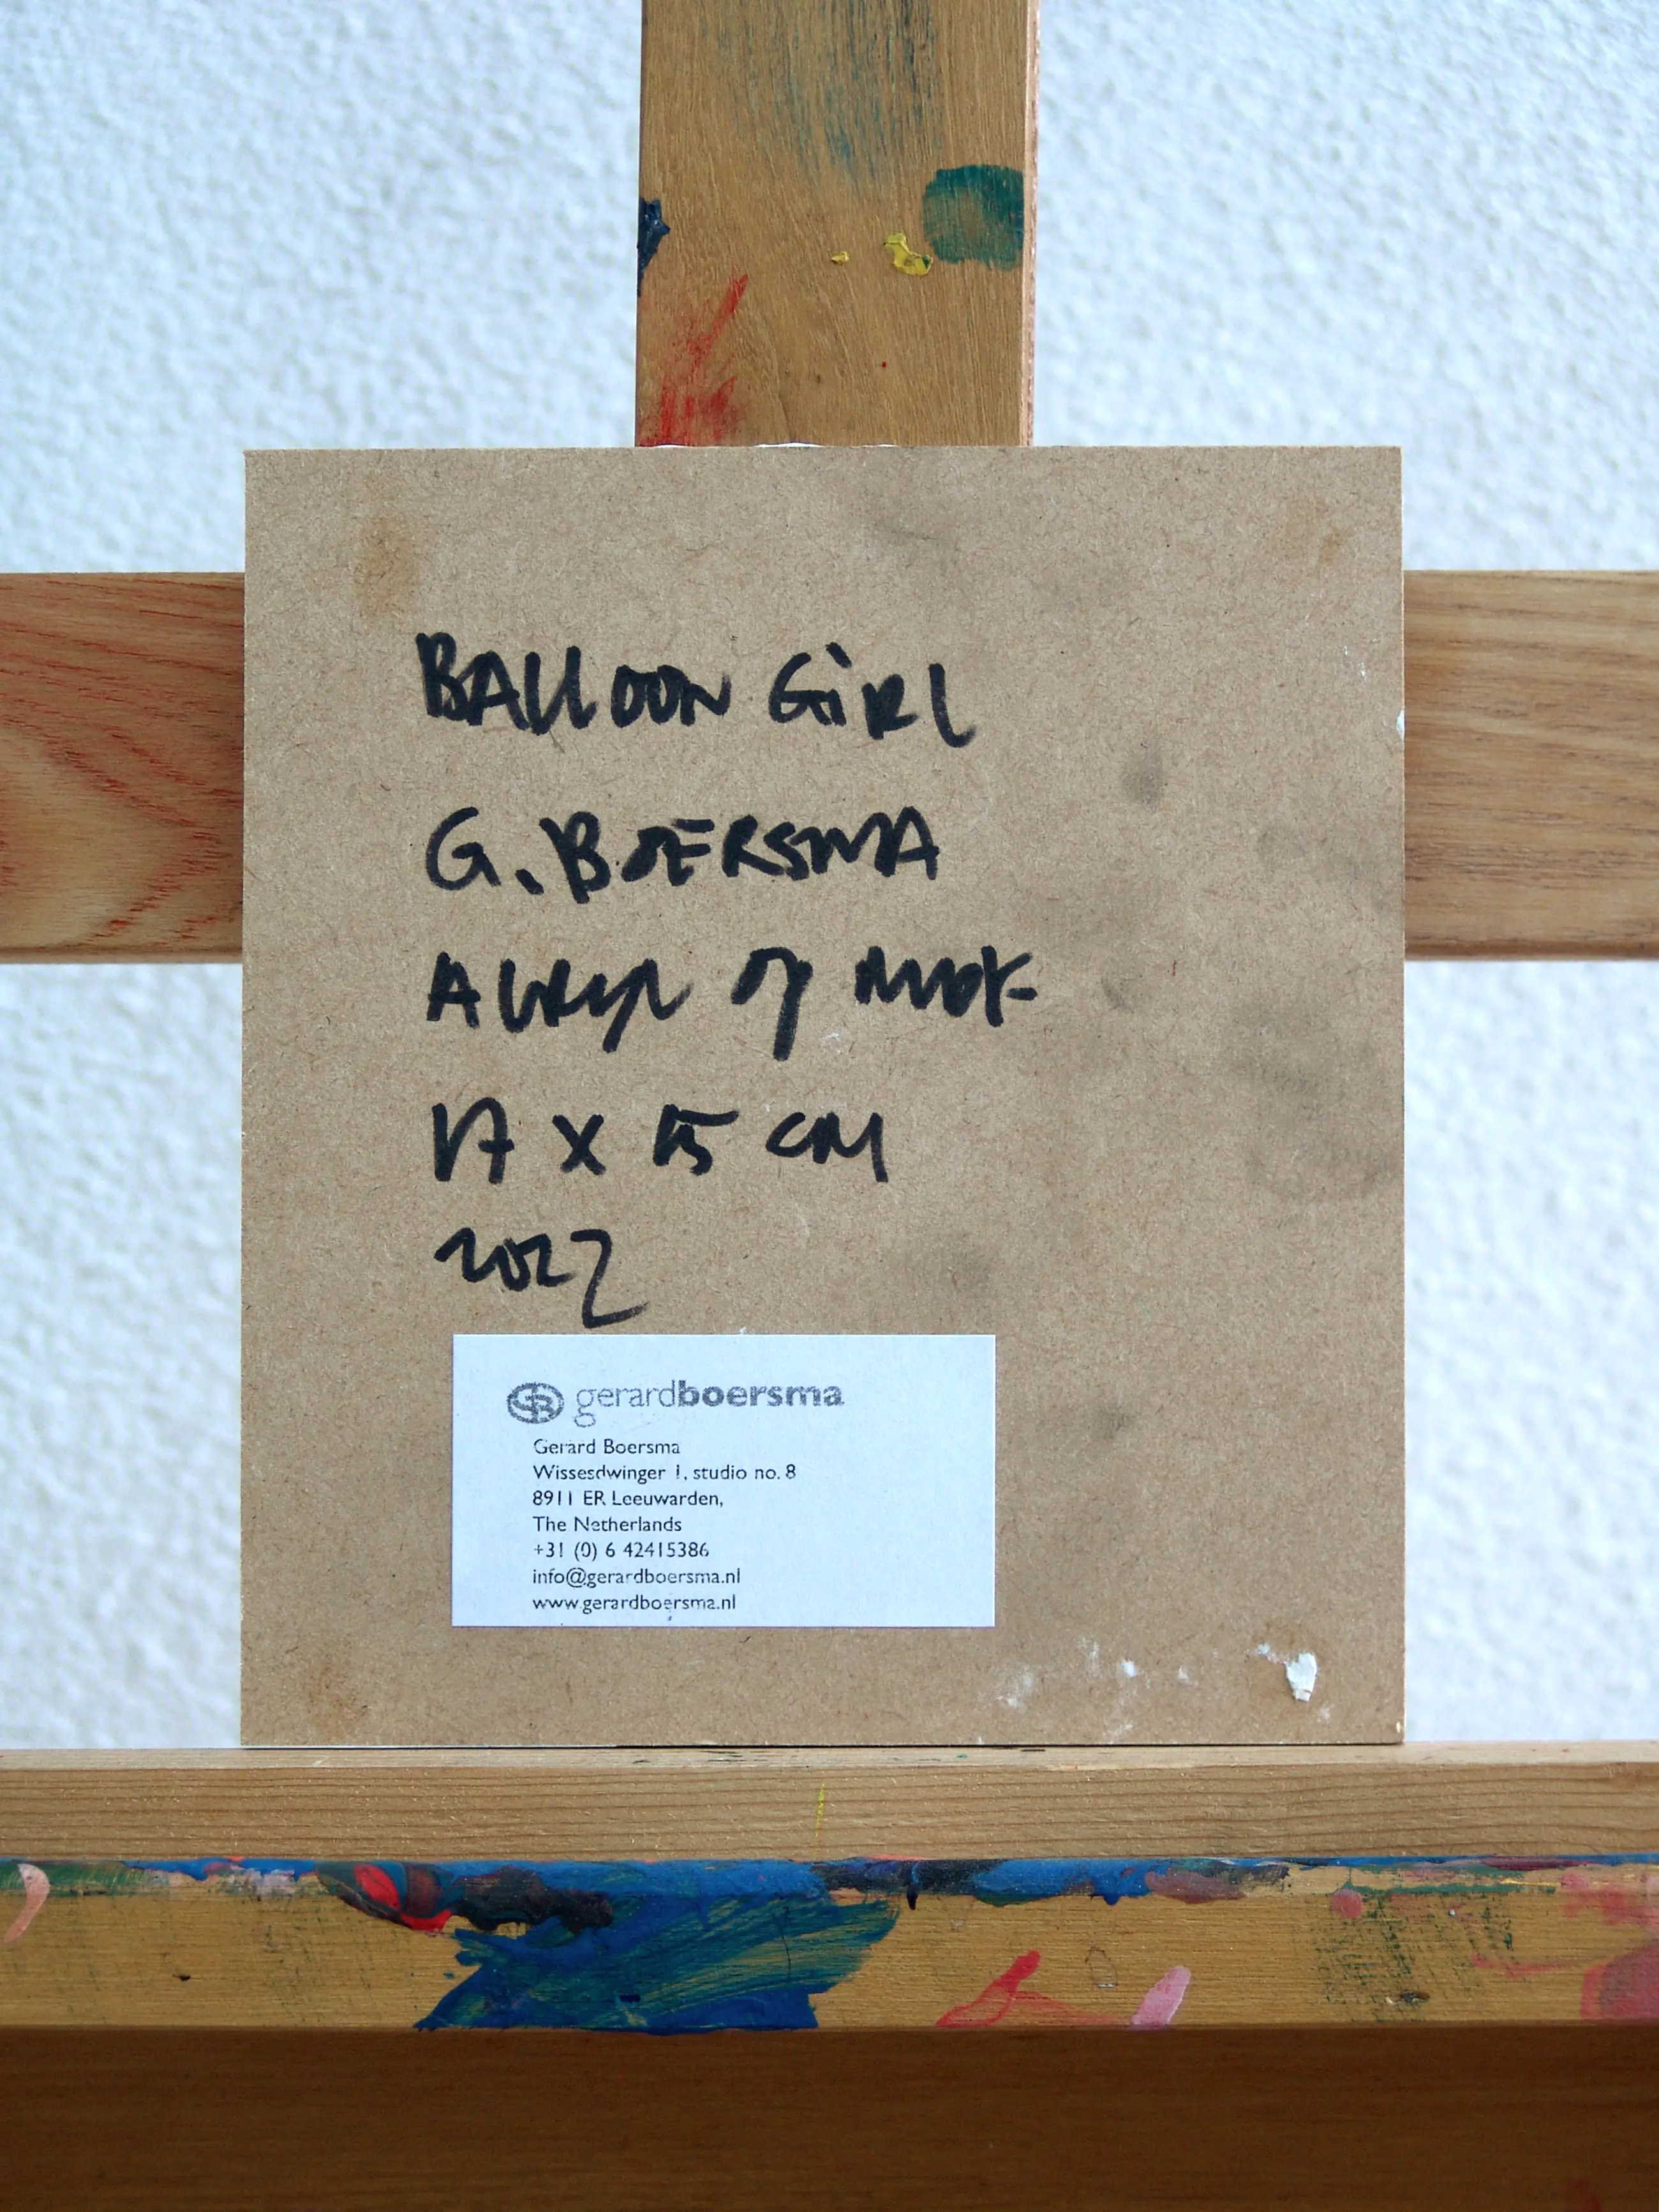 BALLOON GiRL
G. BOERSMA
Acryl op
17 x 15 cm
2022
GB gerardboersma
Gerard Boersma
Wissesdwinger 1, studio no. 8
8911 ER Leeuwarden,
The Netherlands
+31 (0) 6 42415386
info@gerardboersma.nl
www.gerardboersma.nl